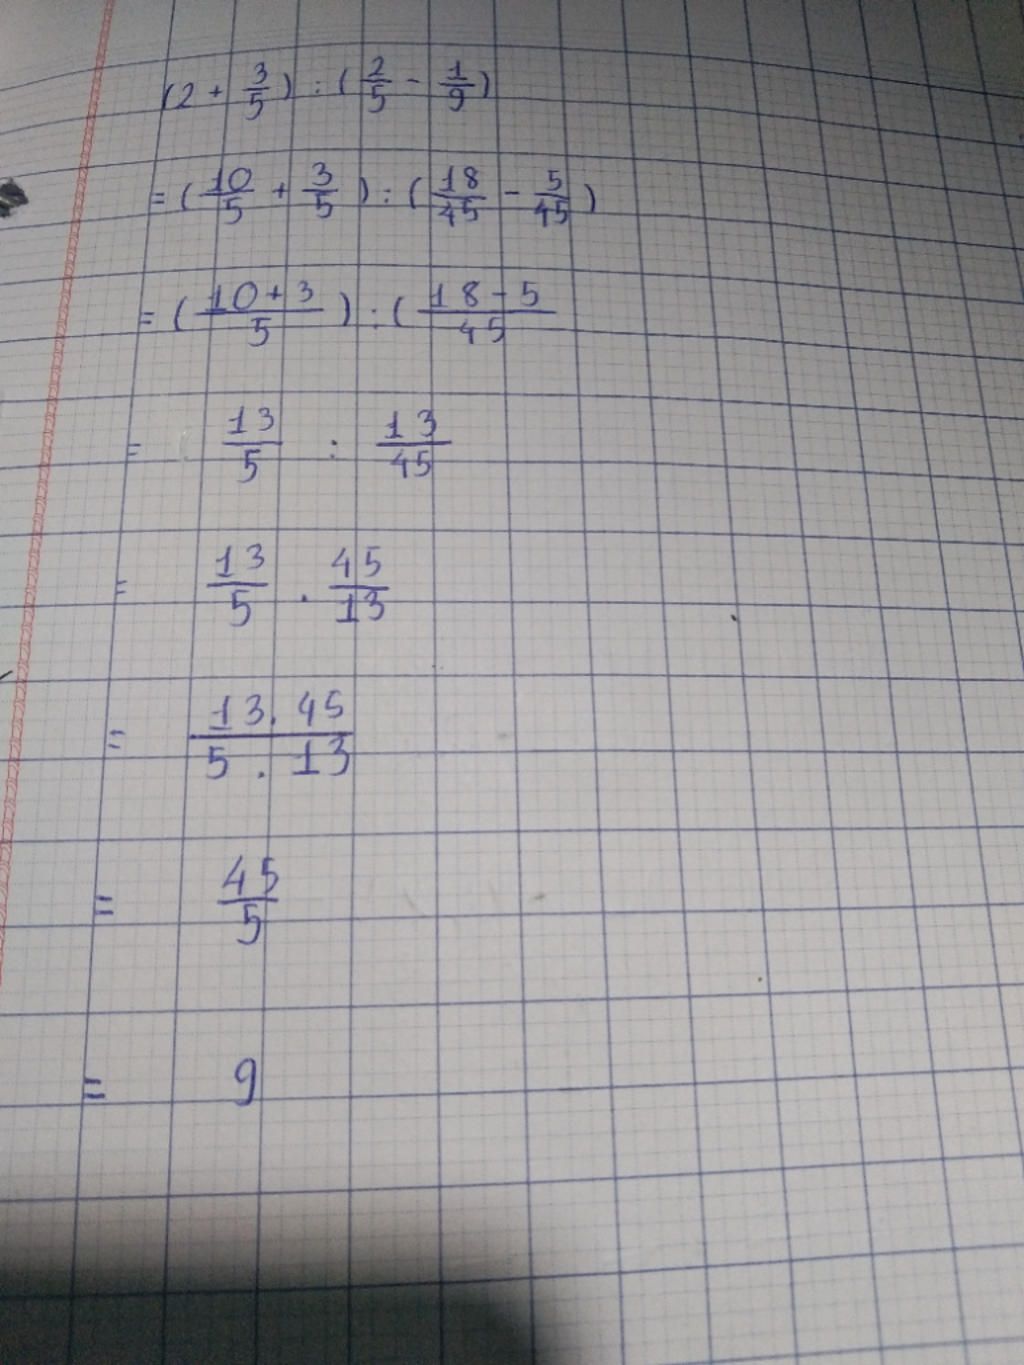 (2 + 3/5) : (2/5 - 1/9)
= (10/5 + 3/5) : (18/45 - 5/45)
= (10+3/5) : (18-5/45
= 13/5 : 13/45
= 13/5 . 45/13
= 13.45/5.13
= 45/5
= 9